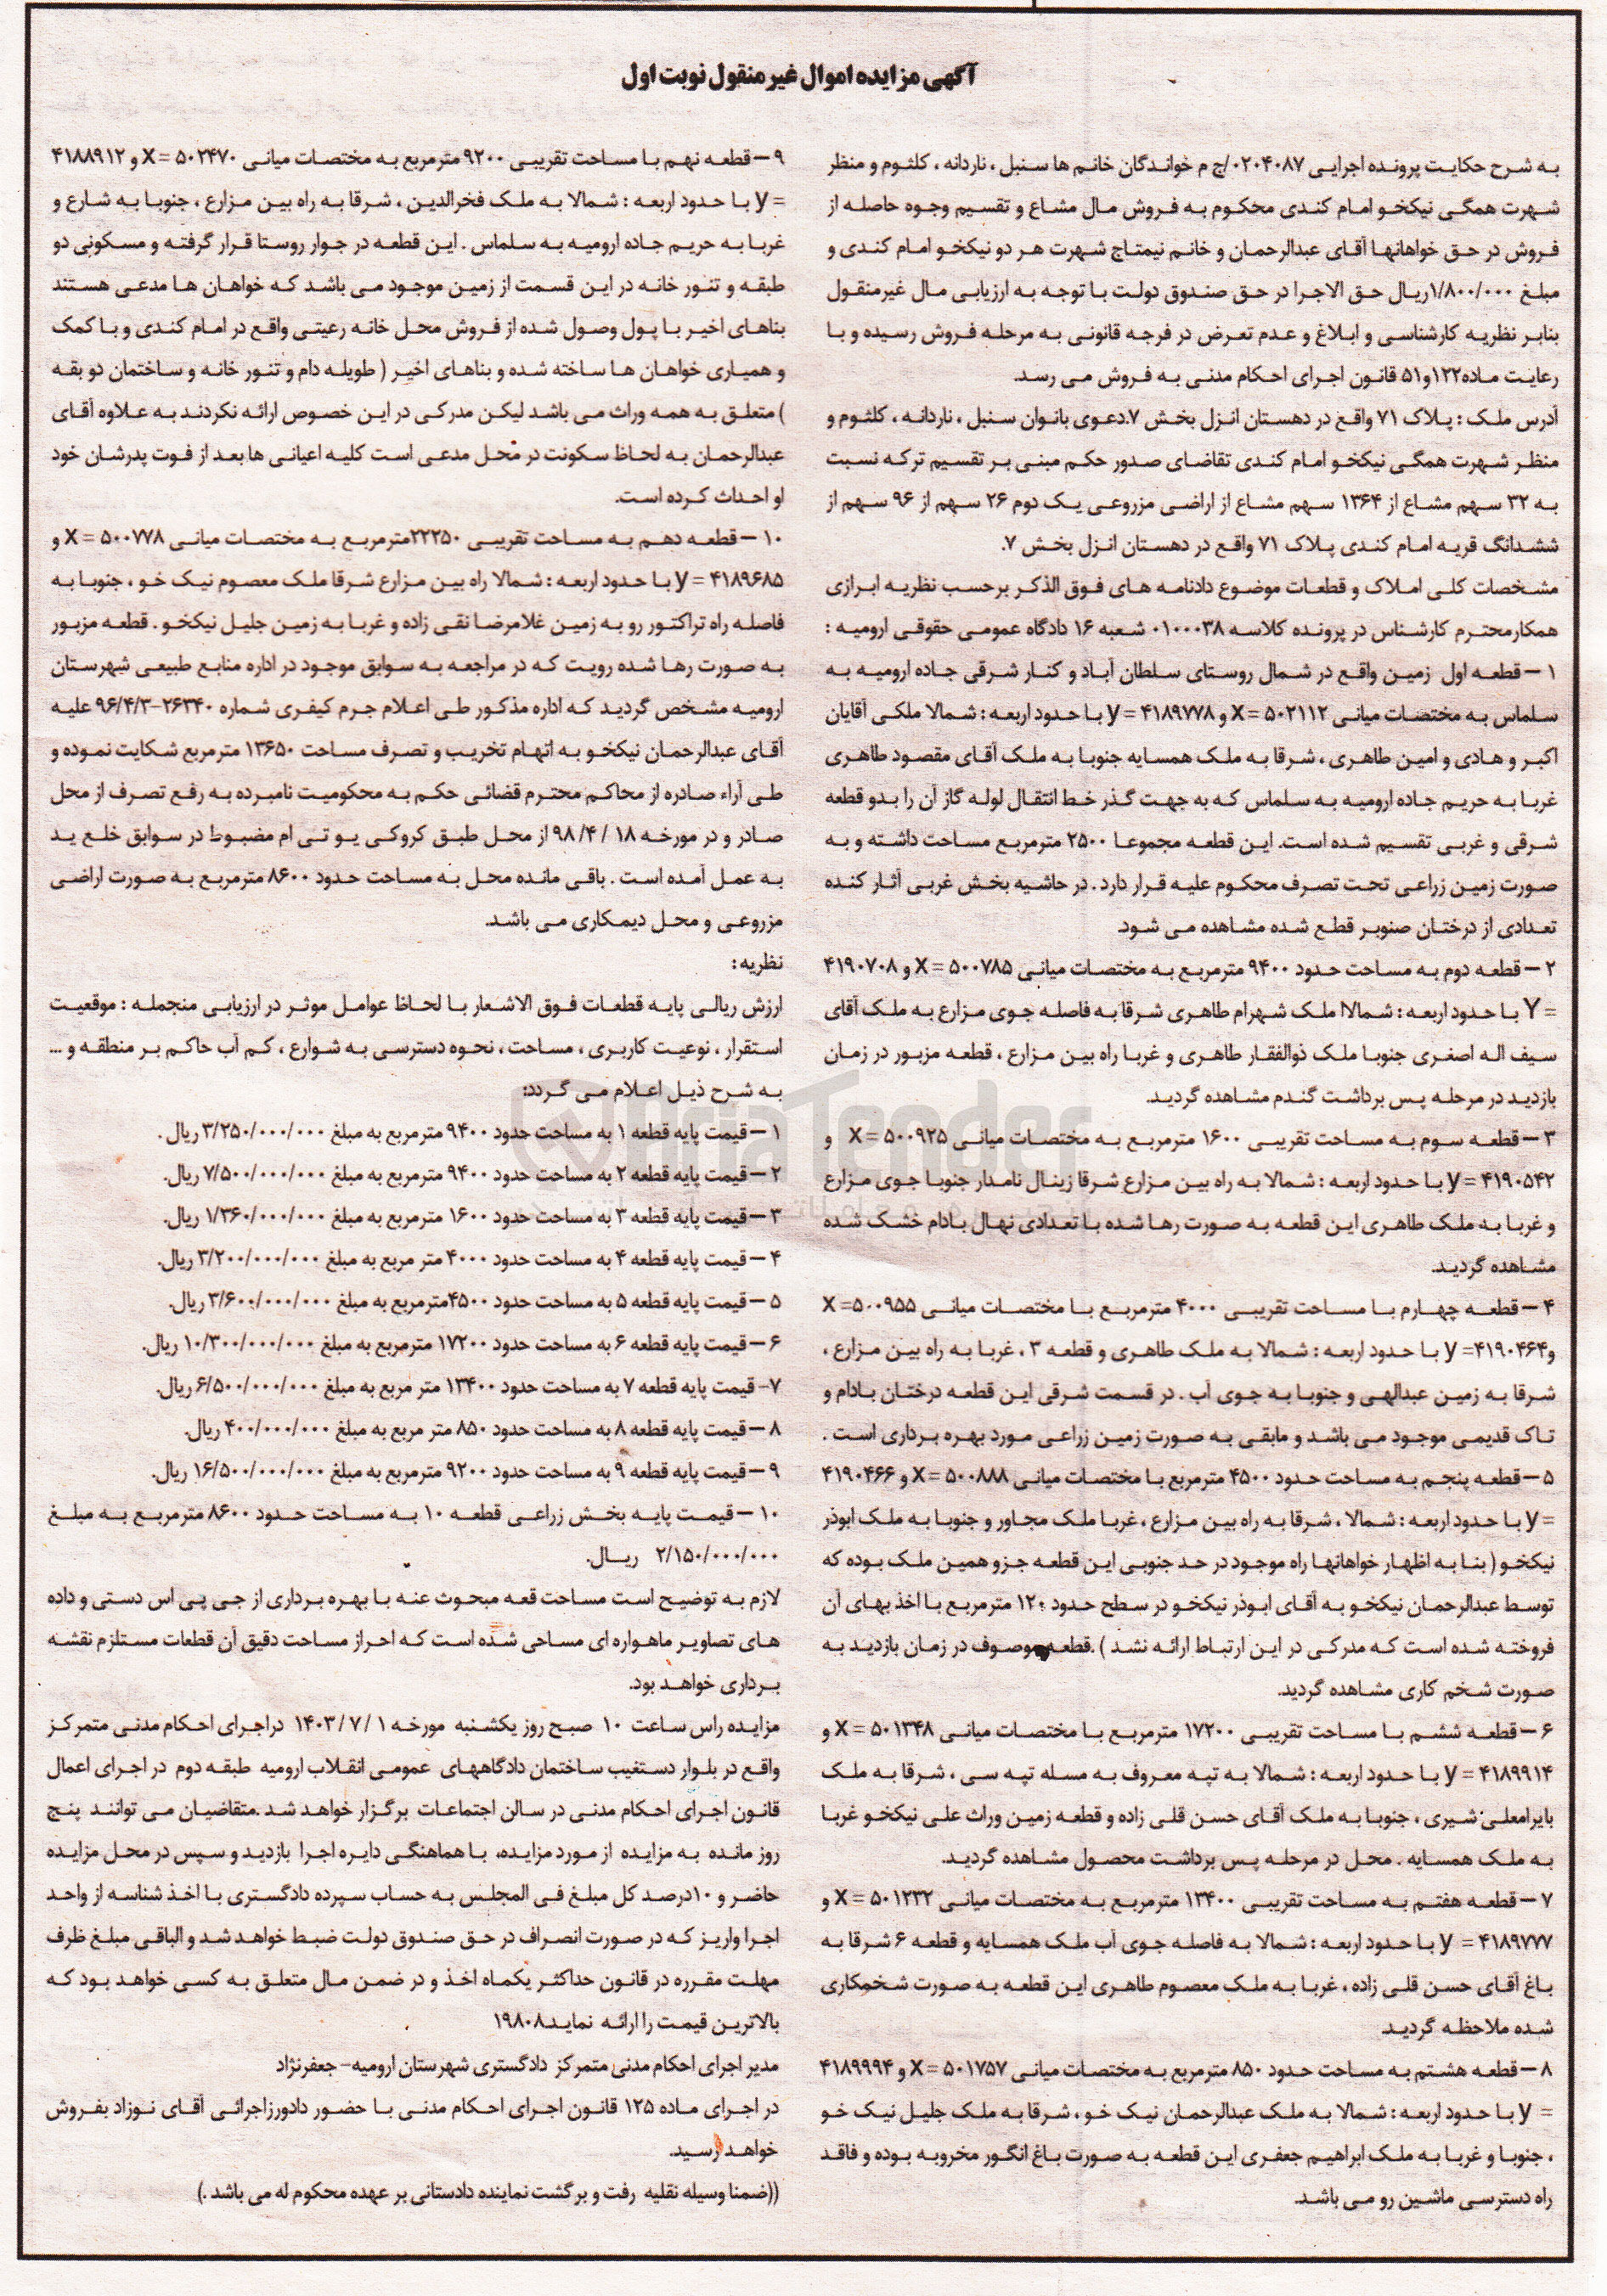 آگهی مزایده اموال غیر منقول نوبت اول
به شرح حکایت پرونده اجرایی ۰۲۰۴۰۸۷/ج م خواندگان خانم ها سنبل ، ناردانه ، کلثوم و منظر
شهرت همگی نیکخو امام کندی محکوم به فروش مال مشاع و تقسیم وجوه حاصله از
فروش در حق خواهانها آقای عبدالرحمان و خانم نیمتاج شهرت هر دو نیکخو امام کندی و
مبلغ ۱/۸۰۰/۰۰۰ریال حق الاجرا در حق صندوق دولت با توجه به ارزیابی مال غیرمنقول
بنابر نظریه کارشناسی و ابلاغ و عدم تعرض در فرجه قانونی به مرحله فروش رسیده و با
رعایت ماده۱۲۲و۵۱ قانون اجرای احکام مدنی به فروش می رسد.
آدرس ملک : پلاک ۷۱ واقع در دهستان انزل بخش ۷.دعوی بانوان سنبل ، ناردانه ، کلثوم و
منظر شهرت همگی نیکخو امام کندی تقاضای صدور حکم مبنی بر تقسیم ترکه نسبت
به ۳۲ سهم مشاع از ۱۳۶۴ سهم مشاع از اراضی مزروعی یک دوم ۲۶ سهم از ۹۶ سهم از
ششدانگ قریه امام کندی پلاک ۷۱ واقع در دهستان انزل بخش ۷.
مشخصات کلی املاک و قطعات موضوع دادنامه های فوق الذکر برحسب نظریه ابرازی
همکارمحترم کارشناس در پرونده کلاسه ۰۱۰۰۰۳۸ شعبه ۱۶ دادگاه عمومی حقوقی ارومیه :
۱ – قطعه اول زمین واقع در شمال روستای سلطان آباد و کنار شرقی جاده ارومیه به
سلماس به مختصات میانی X = ۵۰۲۱۱۲ و y = ۴۱۸۹۷۷۸ با حدود اربعه : شمالا ملکی آقایان
اکبر و هادی و امین طاهری ، شرقا به ملک همسایه جنوبا به ملک آقای مقصود طاهری
غربا به حریم جاده ارومیه به سلماس که به جهت گذر خط انتقال لوله گاز آن را بدو قطعه
شرقی و غربی تقسیم شده است. این قطعه مجموعا ۲۵۰۰ مترمربع مساحت داشته و به
صورت زمین زراعی تحت تصرف محکوم علیه قرار دارد . در حاشیه بخش غربی آثار کنده
تعدادی از درختان صنوبر قطع شده مشاهده می شود.
۲ – قطعه دوم به مساحت حدود ۹۴۰۰ مترمربع به مختصات میانی X = ۵۰۰۷۸۵ و ۴۱۹۰۷۰۸
= Y با حدود اربعه : شمالاا ملک شهرام طاهری شرقا به فاصله جوی مزارع به ملک آقای
سیف اله اصغری جنوبا ملک ذوالفقار طاهری و غربا راه بین مزارع ، قطعه مزبور در زمان
بازدید در مرحله پس برداشت گندم مشاهده گردید.
۳ – قطعه سوم به مساحت تقریبی ۱۶۰۰ مترمربع به مختصات میانی X = ۵۰۰۹۲۵ و
y = ۴۱۹۰۵۴۲ با حدود اربعه : شمالا به راه بین مزارع شرقا زینال نامدار جنوبا جوی مزارع
و غربا به ملک طاهری این قطعه به صورت رها شده با تعدادی نهال بادام خشک شده
مشاهده گردید.
۴ – قطعه چهارم با مساحت تقریبی ۴۰۰۰ مترمربع با مختصات میانی X =۵۰۰۹۵۵
و۴۱۹۰۴۶۴= y با حدود اربعه : شمالا به ملک طاهری و قطعه ۳ ، غربا به راه بین مزارع ،
شرقا به زمین عبدالهی و جنوبا به جوی آب . در قسمت شرقی این قطعه درختان بادام و
تاک قدیمی موجود می باشد و مابقی به صورت زمین زراعی مورد بهره برداری است .
۵ – قطعه پنجم به مساحت حدود ۴۵۰۰ مترمربع با مختصات میانی X = ۵۰۰۸۸۸ و ۴۱۹۰۴۶۶
= y با حدود اربعه : شمالا ، شرقا به راه بین مزارع ، غربا ملک مجاور و جنوبا به ملک ابوذر
نیکخو ( بنا به اظهار خواهانها راه موجود در حد جنوبی این قطعه جزو همین ملک بوده که
توسط عبدالرحمان نیکخو به آقای ابوذر نیکخو در سطح حدود ۱۲۰ مترمربع با اخذ بهای آن
فروخته شده است که مدرکی در این ارتباط ارائه نشد ) .قطعه موصوف در زمان بازدید به
صورت شخم کاری مشاهده گردید.
۶ – قطعه ششم با مساحت تقریبی ۱۷۲۰۰ مترمربع با مختصات میانی X = ۵۰۱۳۴۸ و
y = ۴۱۸۹۹۱۴ با حدود اربعه : شمالا به تپه معروف به مسله تپه سی ، شرقا به ملک
بایرامعلی شیری ، جنوبا به ملک آقای حسن قلی زاده و قطعه زمین وراث علی نیکخو غربا
به ملک همسایه . محل در مرحله پس برداشت محصول مشاهده گردید.
۷ – قطعه هفتم به مساحت تقریبی ۱۳۴۰۰ مترمربع به مختصات میانی X = ۵۰۱۲۳۲ و
y = ۴۱۸۹۷۷۷ با حدود اربعه : شمالا به فاصله جوی آب ملک همسایه و قطعه ۶ شرقا به
باغ آقای حسن قلی زاده ، غربا به ملک معصوم طاهری این قطعه به صورت شخمکاری
شده ملاحظه گردید.
۸ – قطعه هشتم به مساحت حدود ۸۵۰ مترمربع به مختصات میانی X = ۵۰۱۷۵۷ و ۴۱۸۹۹۹۴
= y با حدود اربعه : شمالا به ملک عبدالرحمان نیک خو ، شرقا به ملک جلیل نیک خو
، جنوبا و غربا به ملک ابراهیم جعفری این قطعه به صورت باغ انگور مخروبه بوده و فاقد
راه دسترسی ماشین رو می باشد.
۹ – قطعه نهم با مساحت تقریبی ۹۲۰۰ مترمربع به مختصات میانی X = ۵۰۲۴۷۰ و ۴۱۸۸۹۱۲
= y با حدود اربعه : شمالا به ملک فخرالدین ، شرقا به راه بین مزارع ، جنوبا به شارع و
غربا به حریم جاده ارومیه به سلماس . این قطعه در جوار روستا قرار گرفته و مسکونی دو
طبقه و تنور خانه در این قسمت از زمین موجود می باشد که خواهان ها مدعی هستند
بناهای اخیر با پول وصول شده از فروش محل خانه رعیتی واقع در امام کندی و با کمک
و همیاری خواهان ها ساخته شده و بناهای اخیر ( طویله دام و تنور خانه و ساختمان دو بقه
) متعلق به همه وراث می باشد لیکن مدرکی در این خصوص ارائه نکردند به علاوه آقای
عبدالرحمان به لحاظ سکونت در محل مدعی است کلیه اعیانی ها بعد از فوت پدرشان خود
او احداث کرده است.
۱۰ – قطعه دهم به مساحت تقریبی ۲۲۲۵۰مترمربع به مختصات میانی X = ۵۰۰۷۷۸ و
y = ۴۱۸۹۶۸۵ با حدود اربعه : شمالا راه بین مزارع شرقا ملک معصوم نیک خو ، جنوبا به
فاصله راه تراکتور رو به زمین غلامرضا نقی زاده و غربا به زمین جلیل نیکخو . قطعه مزبور
به صورت رها شده رویت که در مراجعه به سوابق موجود در اداره منابع طبیعی شهرستان
ارومیه مشخص گردید که اداره مذکور طی اعلام جرم کیفری شماره ۲۶۳۴۰-۹۶/۴/۳ علیه
آقای عبدالرحمان نیکخو به اتهام تخریب و تصرف مساحت ۱۳۶۵۰ مترمربع شکایت نموده و
طی آراء صادره از محاکم محترم قضائی حکم به محکومیت نامبرده به رفع تصرف از محل
صادر و در مورخه ۱۸ / ۴/ ۹۸ از محل طبق کروکی یو تی ام مضبوط در سوابق خلع ید
به عمل آمده است . باقی مانده محل به مساحت حدود ۸۶۰۰ مترمربع به صورت اراضی
مزروعی و محل دیمکاری می باشد.
نظریه :
ارزش ریالی پایه قطعات فوق الاشعار با لحاظ عوامل موثر در ارزیابی منجمله : موقعیت
استقرار ، نوعیت کاربری ، مساحت ، نحوه دسترسی به شوارع ، کم آب حاکم بر منطقه و ...
به شرح ذیل اعلام می گردد:
۱ – قیمت پایه قطعه ۱ به مساحت حدود ۹۴۰۰ مترمربع به مبلغ ۳/۲۵۰/۰۰۰/۰۰۰ ریال .
۲ – قیمت پایه قطعه ۲ به مساحت حدود ۹۴۰۰ مترمربع به مبلغ ۷/۵۰۰/۰۰۰/۰۰۰ ریال.
۳ – قیمت پایه قطعه ۳ به مساحت حدود ۱۶۰۰ مترمربع به مبلغ ۱/۳۶۰/۰۰۰/۰۰۰ ریال.
۴ – قیمت پایه قطعه ۴ به مساحت حدود ۴۰۰۰ متر مربع به مبلغ ۳/۲۰۰/۰۰۰/۰۰۰ ریال.
۵ – قیمت پایه قطعه ۵ به مساحت حدود ۴۵۰۰مترمربع به مبلغ ۳/۶۰۰/۰۰۰/۰۰۰ ریال.
۶ – قیمت پایه قطعه ۶ به مساحت حدود ۱۷۲۰۰ مترمربع به مبلغ ۱۰/۳۰۰/۰۰۰/۰۰۰ ریال.
۷- قیمت پایه قطعه ۷ به مساحت حدود ۱۳۴۰۰ متر مربع به مبلغ ۶/۵۰۰/۰۰۰/۰۰۰ ریال.
۸ – قیمت پایه قطعه ۸ به مساحت حدود ۸۵۰ متر مربع به مبلغ ۴۰۰/۰۰۰/۰۰۰ ریال.
۹ – قیمت پایه قطعه ۹ به مساحت حدود ۹۲۰۰ مترمربع به مبلغ ۱۶/۵۰۰/۰۰۰/۰۰۰ ریال.
۱۰ – قیمت پایه بخش زراعی قطعه ۱۰ به مساحت حدود ۸۶۰۰ مترمربع به مبلغ
۲/۱۵۰/۰۰۰/۰۰۰ ریال.
لازم به توضیح است مساحت قعه مبحوث عنه با بهره برداری از جی پی اس دستی و داده
های تصاویر ماهواره ای مساحی شده است که احراز مساحت دقیق آن قطعات مستلزم نقشه
برداری خواهد بود.
مزایده راس ساعت ۱۰ صبح روز یکشنبه مورخه ۱ / ۷ / ۱۴۰۳ دراجرای احکام مدنی متمرکز
واقع در بلوار دستغیب ساختمان دادگاههای عمومی انقلاب ارومیه طبقه دوم در اجرای اعمال
قانون اجرای احکام مدنی در سالن اجتماعات برگزار خواهد شد .متقاضیان می توانند پنج
روز مانده به مزایده از مورد مزایده، با هماهنگی دایره اجرا بازدید و سپس در محل مزایده
حاضر و ۱۰درصد کل مبلغ فی المجلس به حساب سپرده دادگستری با اخذ شناسه از واحد
اجرا واریز که در صورت انصراف در حق صندوق دولت ضبط خواهد شد و الباقی مبلغ ظرف
مهلت مقرره در قانون حداکثر یکماه اخذ و در ضمن مال متعلق به کسی خواهد بود که
بالاترین قیمت را ارائه نماید۱۹۸۰۸
مدیر اجرای احکام مدنی متمرکز دادگستری شهرستان ارومیه- جعفرنژاد
در اجرای ماده ۱۲۵ قانون اجرای احکام مدنی با حضور دادورزاجرائی آقای نوزاد بفروش
خواهد رسید.
((ضمنا وسیله نقلیه رفت و برگشت نماینده دادستانی بر عهده محکوم له می باشد .)
AriaTender